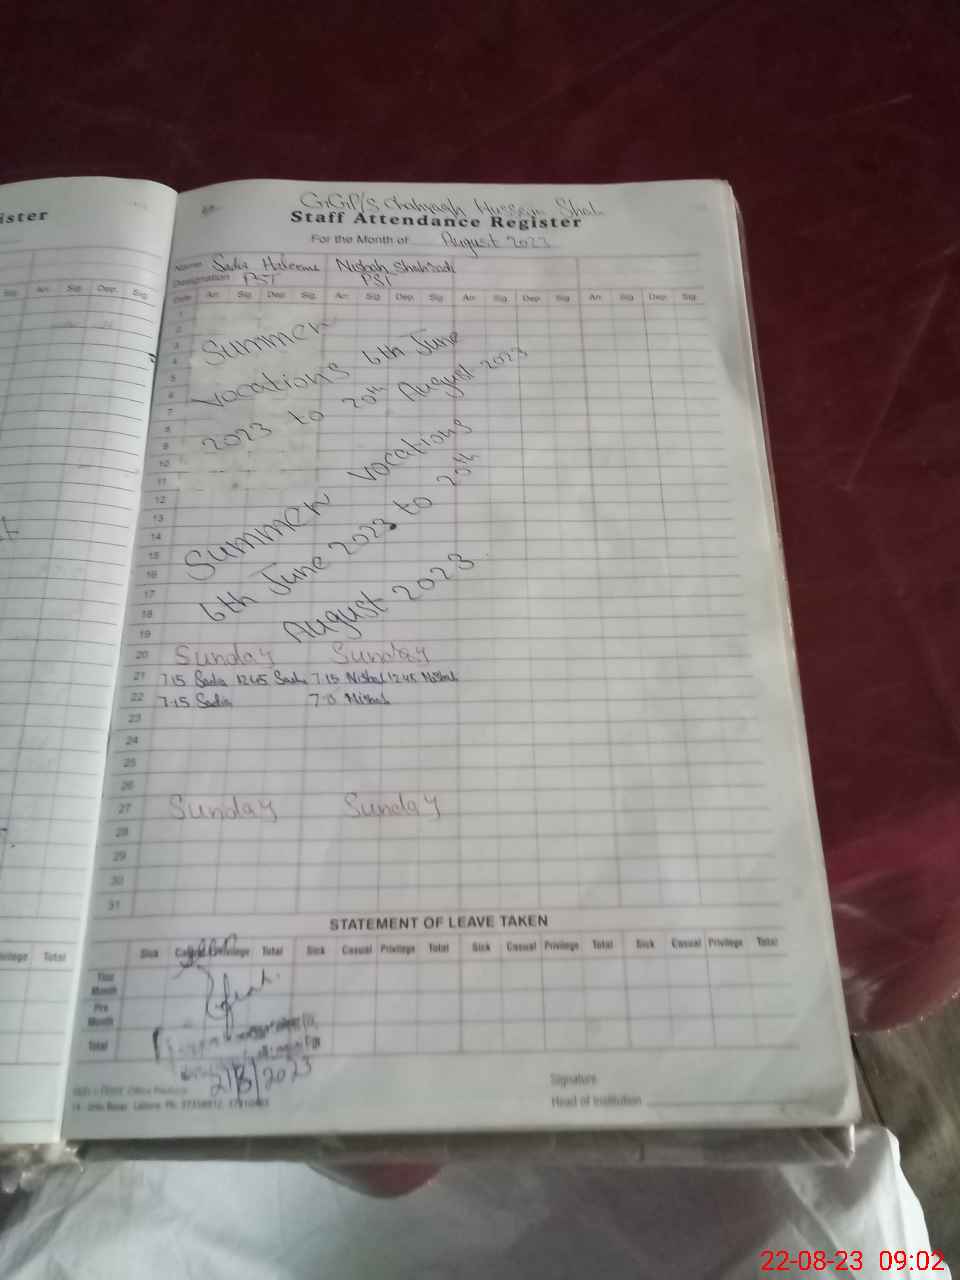 ister
Sig. Arr. Sig. Dep. Sig.
G.G.P/S Hussain Shah
Staff Attendance Register
For the Month of August 2023
Name Sadia Nisbah
Designation PST PST
Date Arr. Sig. Dep. Sig. Arr. Sig. Dep. Sig. Arr. Sig. Dep. Sig. Arr. Sig. Dep. Sig.
1
2
3
4
5
6
7
8
9
10
11
12
13
14
15
16
17
18
19
Summer
vocations 6th June
2023 to 20th August 2023
Summer vocations
6th June 2023 to 20th
August 2023
20 Sunday Sunday
21 7.15 Sadia 12.45 Sadia 7.15 Nisbah 12.45 Nisbah
22 7.15 Sadia Nisbah
23
24
25
26
27 Sunday Sunday
28
29
30
31
STATEMENT OF LEAVE TAKEN
Sick Casual Privilege Total Sick Casual Privilege Total Sick Casual Privilege Total Sick Casual Privilege Total
This Month
Pre Month
Total
vilege Total
21/8/2023
Signature
Head of Institution
22-08-23 09:02